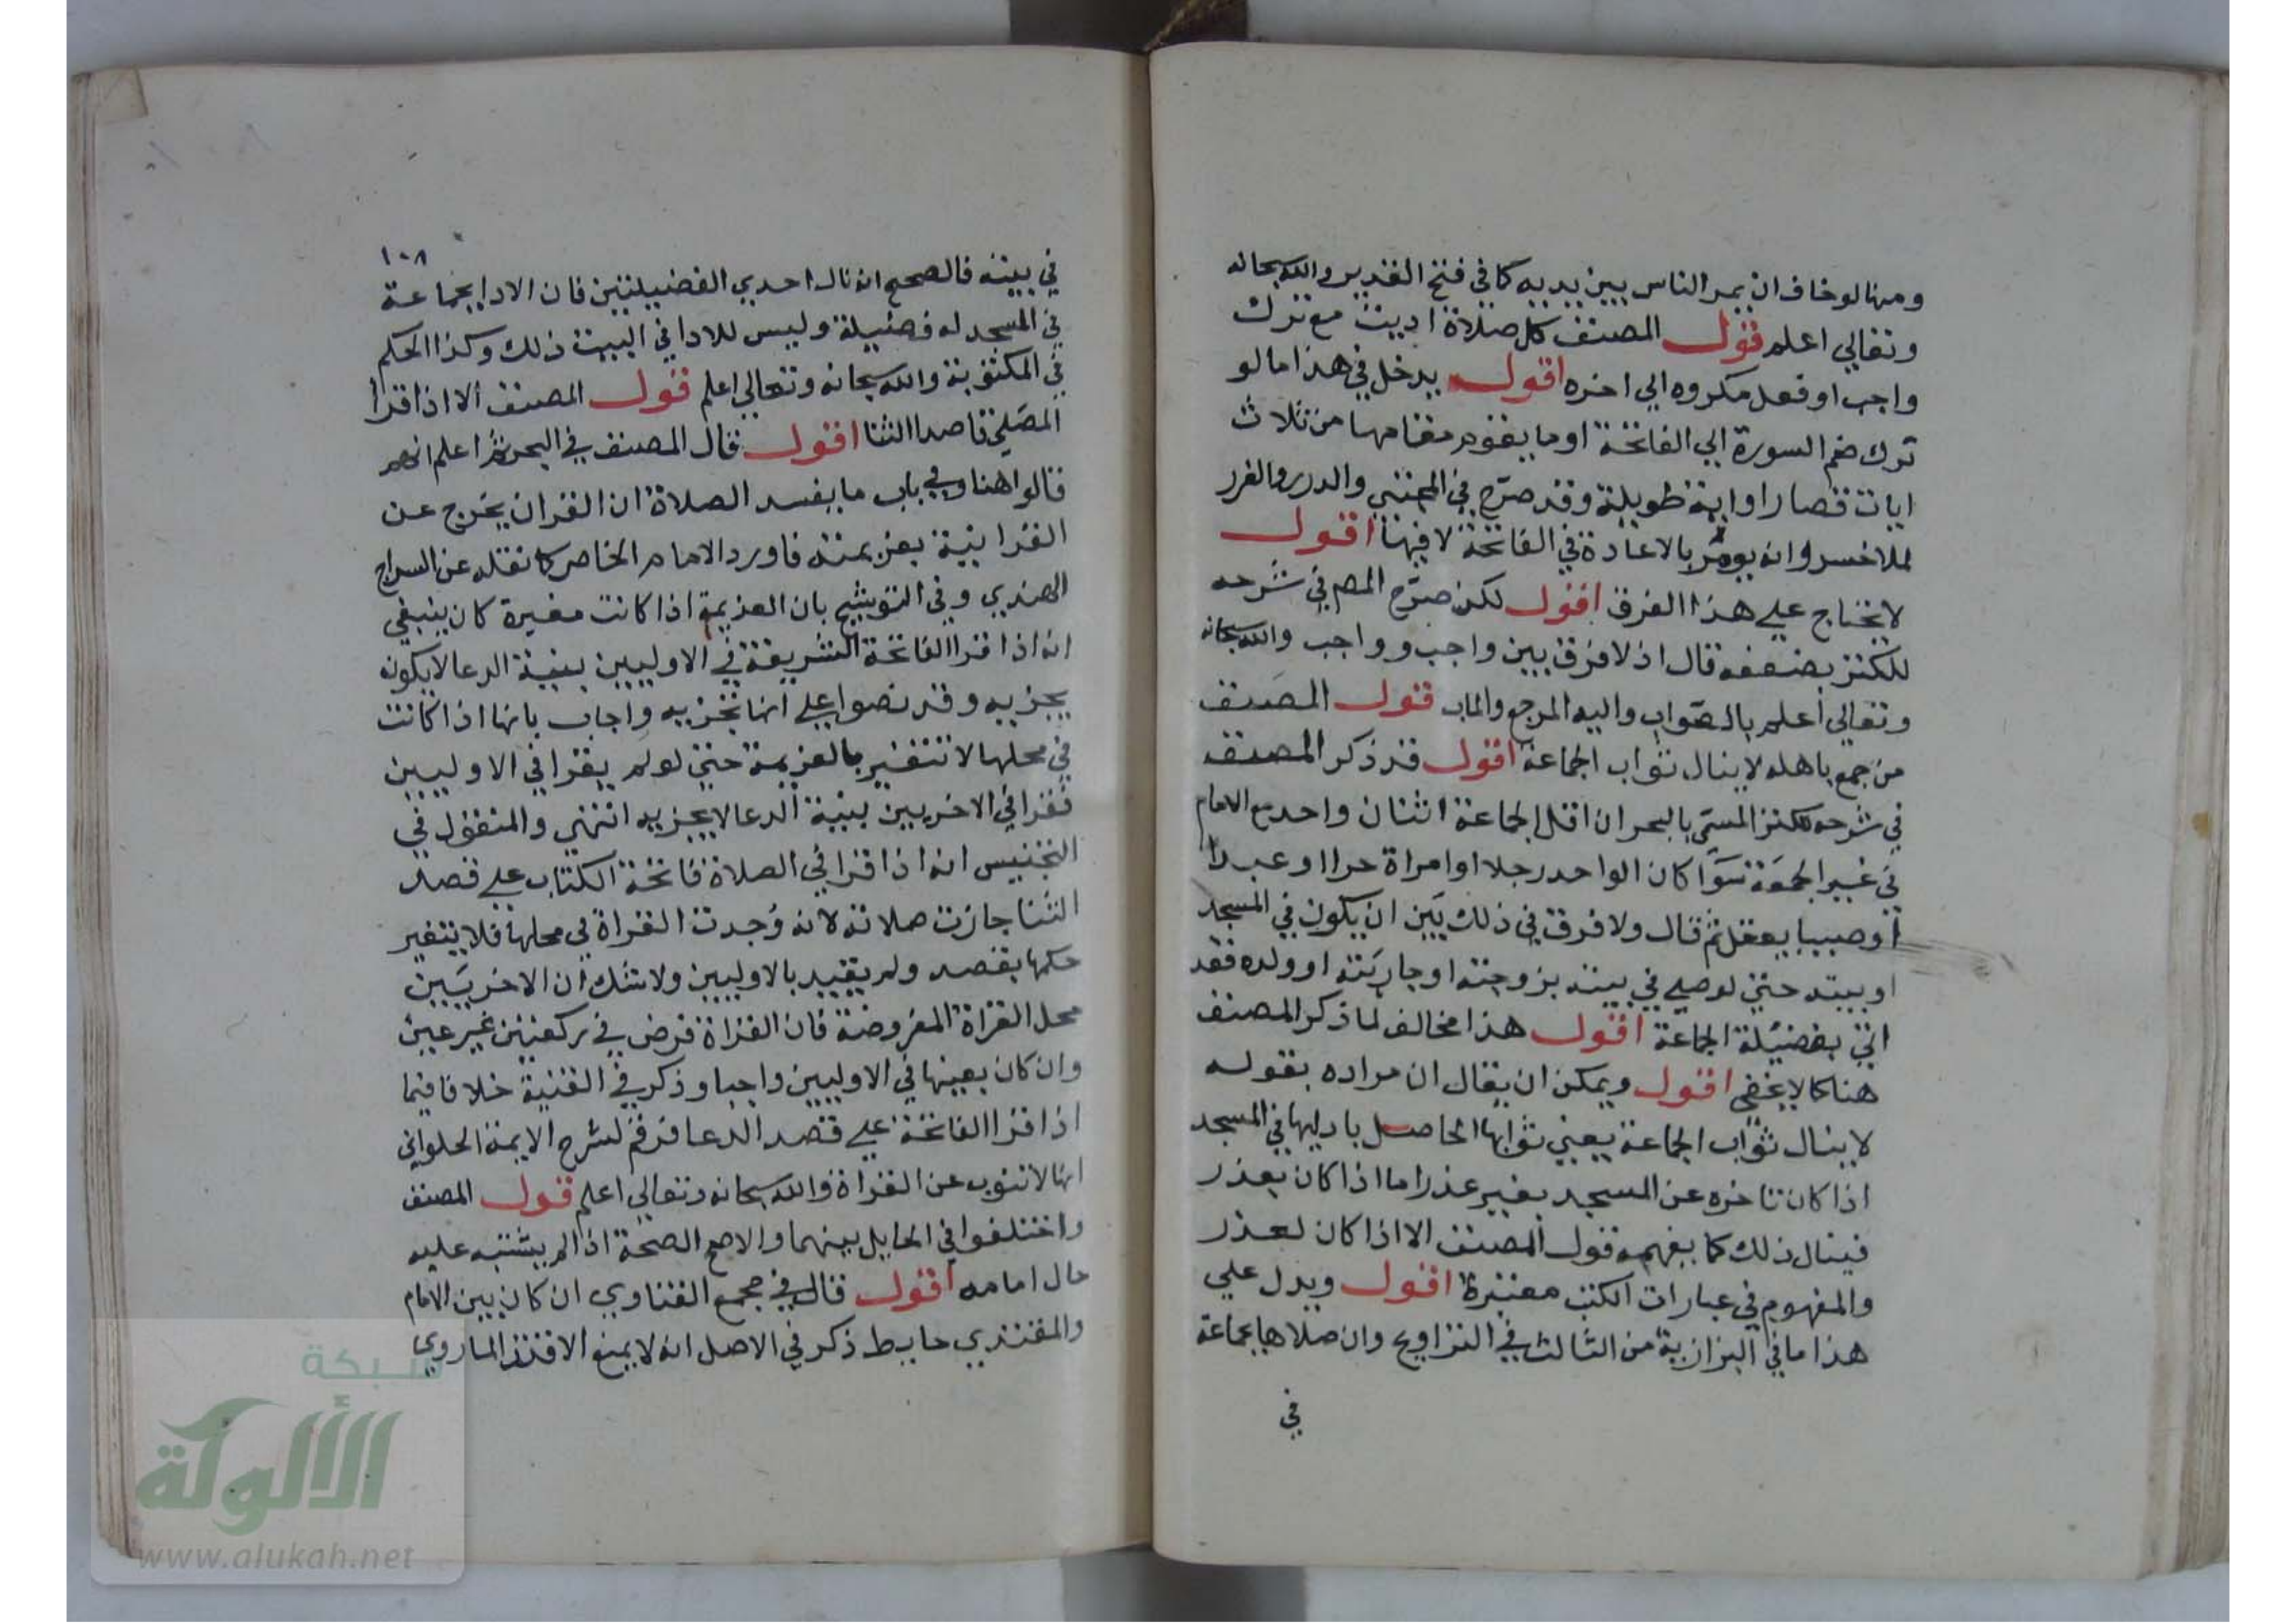 ومنها لو خاف ان يمر الناس بين يديه كما في فتح القدير والله سبحانه
وتعالي اعلم قول المصنف كل صلاة اديت مع ترك
واجب او فعل مكروه الي اخره اقول يدخل في هذا ما لو
ترك ضم السورة الي الفاتحة او ما يقوم مقامها من ثلاث
ايات قصار او اية طويلة وقد صرح في المجتبي والدرر والغرر
لملا خسرو انه يومر بالاعادة في الفاتحة لا فيها اقول
لا نحتاج علي هذا الفرق اقول لكن صرح المص في شرحه
للكنز بضعفه قال اذ لا فرق بين واجب و واجب والله سبحانه
وتعالي اعلم بالصواب واليه المرجع والماب قول المصنف
من جمع باهله لا ينال ثواب الجماعة اقول قد ذكر المصنف
في شرحه للكنز المسمي بالبحر ان اقل الجماعة اثنان واحد مع الامام
في غير الجمعة سوا كان الواحد رجلا او امراة حرا او عبدا
او صبيا يعقل ثم قال ولا فرق في ذلك بين ان يكون في المسجد
او بيته حتي لو صلي في بيته بزوجته او جاريته او ولده فقد
اتي بفضيلة الجماعة اقول هذا مخالف لما ذكر المصنف
هنا كما لا يخفي اقول ويمكن ان يقال ان مراده بقوله
لا ينال ثواب الجماعة يعني ثوابها الحاصل باديها في المسجد
اذا كان تاخره عن المسجد بغير عذر اما اذا كان بعذر
فينال ذلك كما يفهمه قول المصنف الا اذا كان لعذر
والمفهوم في عبارات الكتب معتبرة اقول ويدل علي
هذا ما في البزازية من الثالث في التراويح وان صلاها بجماعة
في
١٠٨
في بيته فالصحيح انه نال احدي الفضيلتين فان الادا بجماعة
في المسجد له فضيلة وليس للادا في البيت ذلك وكذا الحكم
في المكتوبة والله سبحانه وتعالي اعلم قول المصنف الا اذا قرا
المصلي قاصدا الثنا اقول قال المصنف في البحر ثم اعلم انهم
قالوا هنا وفي باب ما يفسد الصلاة ان القران يخرج عن
القرانية بعزيمته فاورد الامام الخاصر كما نقله عن السراج
الهندي وفي التوشيح بان العزيمة اذا كانت مغيرة كان ينبغي
انه اذا قرا الفاتحة الشريفة في الاوليين بنية الدعا لا يكون
يجزيه وقد نصوا علي انها تجزيه واجاب بانها اذا كانت
في محلها لا تتغير بالعزيمة حتي لو لم يقرا في الاوليين
فقرا في الاخريين بنية الدعا لا يجزيه انتهي والمنقول في
التجنيس انه اذا قرا في الصلاة فاتحة الكتاب علي قصد
الثنا جازت صلاته لانه وجدت القراة في محلها فلا يتغير
حكمها بقصد ولم يقيد بالاوليين ولا شك ان الاخريين
محل القراة المفروضة فان القراة فرض في ركعتين غير عين
وان كان بعينها في الاوليين واجبا وذكر في القنية خلافا فيما
اذا قرا الفاتحة علي قصد الدعا فرقم لشرح الايمة الحلواني
انها لا تنوب عن القراة والله سبحانه وتعالي اعلم قول المصنف
واختلفوا في الحايل بينهما والاصح الصحة اذا لم يشتبه عليه
حال امامه اقول قال في مجمع الفتاوي ان كان بين الامام
والمقتدي حايط ذكر في الاصل انه لا يمنع الاقتدا لما روي
شبكة
الألوكة
www.alukah.net